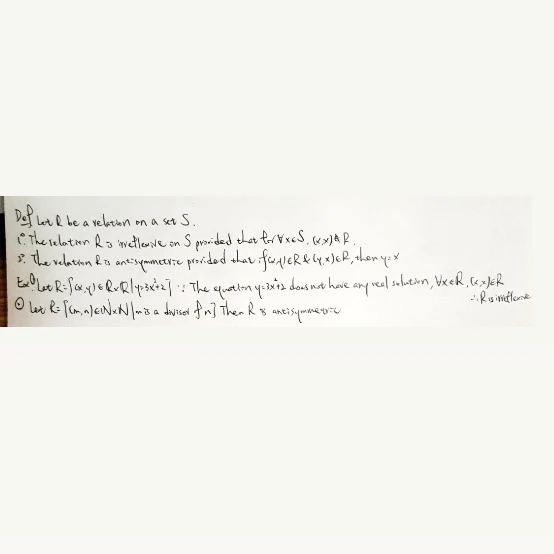 Def Let R be a relation on a set S.
1°. The relation R is irreflexive on S provided that for ∀x∈S, (x,x)∉R.
2°. The relation R is antisymmetric provided that if (x,y)∈R & (y,x)∈R, then y=x
Ex① Let R={(x,y)∈R×R|y=3x²+2} ∵ The equation y=3x²+2 does not have any real solution, ∀x∈R, (x,x)∉R
∴ R is irreflexive
② Let R={(m,n)∈N×N|m is a divisor of n} Then R is antisymmetric